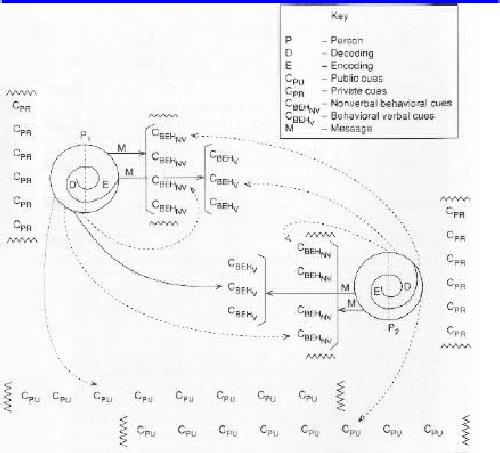 Key
P – Person
D – Decoding
E – Encoding
C_PU – Public cues
C_PR – Private cues
C_BEH_NV – Nonverbal behavioral cues
C_BEH_V – Behavioral verbal cues
M – Message
C_PR
C_PR
C_PR
C_PR
C_PR
C_PR
P_1
D E
M
M
C_BEH_NV
C_BEH_NV
C_BEH_NV
C_BEH_NV
C_BEH_V
C_BEH_V
C_BEH_V
C_BEH_V
C_BEH_V
C_BEH_V
C_BEH_NV
C_BEH_NV
C_BEH_NV
C_BEH_NV
M
M
E D
P_2
C_PR
C_PR
C_PR
C_PR
C_PR
C_PR
C_PU C_PU C_PU C_PU C_PU C_PU C_PU C_PU
C_PU C_PU C_PU C_PU C_PU C_PU C_PU C_PU